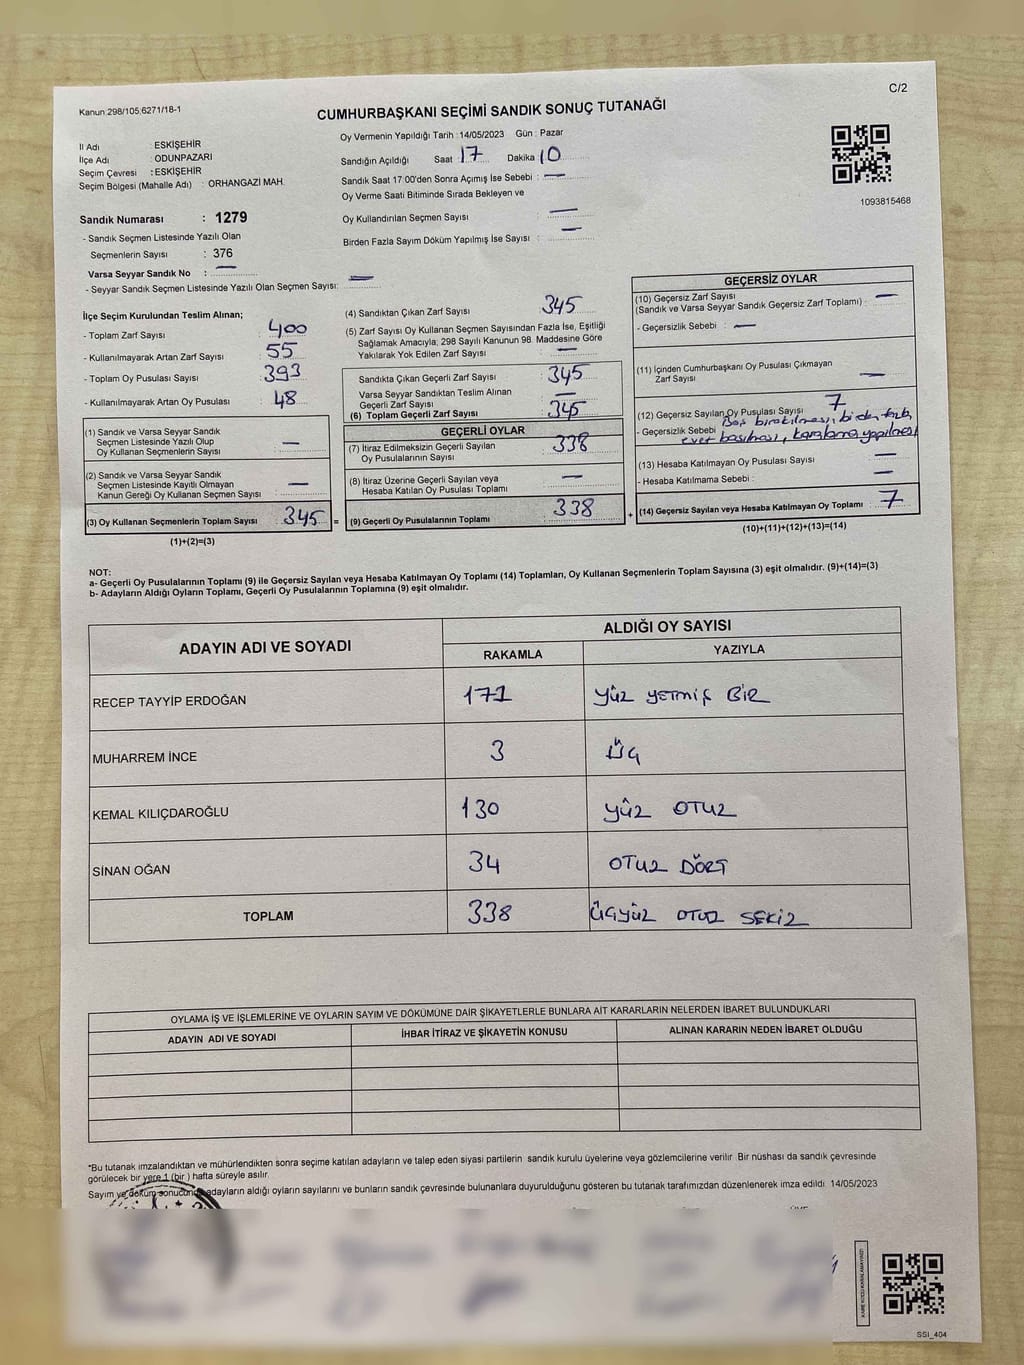 Kanun:298/105;6271/18-1
C/2
CUMHURBAŞKANI SEÇİMİ SANDIK SONUÇ TUTANAĞI
İl Adı : ESKİŞEHİR
İlçe Adı : ODUNPAZARI
Seçim Çevresi : ESKİŞEHİR
Seçim Bölgesi (Mahalle Adı) : ORHANGAZİ MAH.
Sandık Numarası : 1279
- Sandık Seçmen Listesinde Yazılı Olan
Seçmenlerin Sayısı : 376
Varsa Seyyar Sandık No : —
- Seyyar Sandık Seçmen Listesinde Yazılı Olan Seçmen Sayısı: —
Oy Vermenin Yapıldığı Tarih :14/05/2023 Gün : Pazar
Sandığın Açıldığı Saat 17 Dakika 10
Sandık Saat 17:00'den Sonra Açımış İse Sebebi : —
Oy Verme Saati Bitiminde Sırada Bekleyen ve
Oy Kullandırılan Seçmen Sayısı : —
Birden Fazla Sayım Döküm Yapılmış İse Sayısı : —
1093815468
İlçe Seçim Kurulundan Teslim Alınan;
- Toplam Zarf Sayısı : 400
- Kullanılmayarak Artan Zarf Sayısı : 55
- Toplam Oy Pusulası Sayısı : 393
- Kullanılmayarak Artan Oy Pusulası : 48
(1) Sandık ve Varsa Seyyar Sandık
Seçmen Listesinde Yazılı Olup
Oy Kullanan Seçmenlerin Sayısı : —
(2) Sandık ve Varsa Seyyar Sandık
Seçmen Listesinde Kayıtlı Olmayan
Kanun Gereği Oy Kullanan Seçmen Sayısı : —
(3) Oy Kullanan Seçmenlerin Toplam Sayısı : 345 =
(1)+(2)=(3)
(4) Sandıktan Çıkan Zarf Sayısı : 345
(5) Zarf Sayısı Oy Kullanan Seçmen Sayısından Fazla İse, Eşitliği
Sağlamak Amacıyla; 298 Sayılı Kanunun 98. Maddesine Göre
Yakılarak Yok Edilen Zarf Sayısı : —
Sandıkta Çıkan Geçerli Zarf Sayısı : 345
Varsa Seyyar Sandıktan Teslim Alınan
Geçerli Zarf Sayısı : —
(6) Toplam Geçerli Zarf Sayısı : 345
GEÇERLİ OYLAR
(7) İtiraz Edilmeksizin Geçerli Sayılan
Oy Pusulalarının Sayısı : 338
(8) İtiraz Üzerine Geçerli Sayılan veya
Hesaba Katılan Oy Pusulası Toplamı : —
(9) Geçerli Oy Pusulalarının Toplamı : 338 +
GEÇERSİZ OYLAR
(10) Geçersiz Zarf Sayısı
(Sandık ve Varsa Seyyar Sandık Geçersiz Zarf Toplamı) : —
- Geçersizlik Sebebi : —
(11) İçinden Cumhurbaşkanı Oy Pusulası Çıkmayan
Zarf Sayısı : —
(12) Geçersiz Sayılan Oy Pusulası Sayısı : 7
- Geçersizlik Sebebi : Boş bırakılması, birden fazla
evet basılması, karalama yapılması
(13) Hesaba Katılmayan Oy Pusulası Sayısı : —
- Hesaba Katılmama Sebebi : —
(14) Geçersiz Sayılan veya Hesaba Katılmayan Oy Toplamı : 7
(10)+(11)+(12)+(13)=(14)
NOT:
a- Geçerli Oy Pusulalarının Toplamı (9) ile Geçersiz Sayılan veya Hesaba Katılmayan Oy Toplamı (14) Toplamları, Oy Kullanan Seçmenlerin Toplam Sayısına (3) eşit olmalıdır. (9)+(14)=(3)
b- Adayların Aldığı Oyların Toplamı, Geçerli Oy Pusulalarının Toplamına (9) eşit olmalıdır.
ADAYIN ADI VE SOYADI
ALDIĞI OY SAYISI
RAKAMLA YAZIYLA
RECEP TAYYİP ERDOĞAN 171 YÜZ YETMİŞ BİR
MUHARREM İNCE 3 ÜÇ
KEMAL KILIÇDAROĞLU 130 YÜZ OTUZ
SİNAN OĞAN 34 OTUZ DÖRT
TOPLAM 338 ÜÇYÜZ OTUZ SEKİZ
OYLAMA İŞ VE İŞLEMLERİNE VE OYLARIN SAYIM VE DÖKÜMÜNE DAİR ŞİKAYETLERLE BUNLARA AİT KARARLARIN NELERDEN İBARET BULUNDUKLARI
ADAYIN ADI VE SOYADI İHBAR İTİRAZ VE ŞİKAYETİN KONUSU ALINAN KARARIN NEDEN İBARET OLDUĞU
*Bu tutanak imzalandıktan ve mühürlendikten sonra seçime katılan adayların ve talep eden siyasi partilerin sandık kurulu üyelerine veya gözlemcilerine verilir. Bir nüshası da sandık çevresinde
görülecek bir yere 1 (bir ) hafta süreyle asılır.
Sayım ve döküm sonucunda adayların aldığı oyların sayılarını ve bunların sandık çevresinde bulunanlara duyurulduğunu gösteren bu tutanak tarafımızdan düzenlenerek imza edildi. 14/05/2023
SSI_404